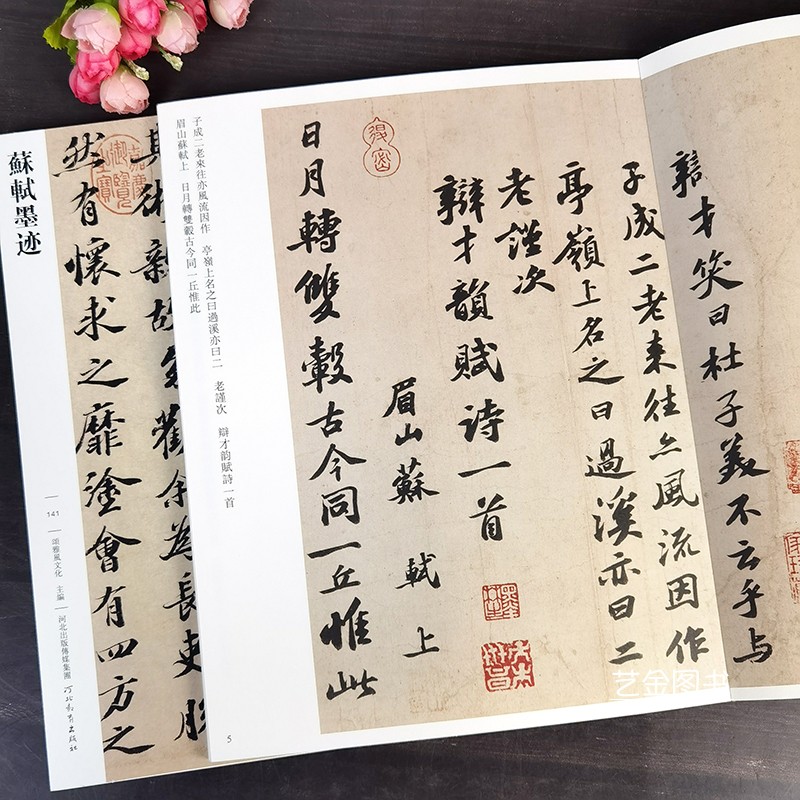 辯才笑曰杜子美不云乎与
子成二老来往亦風流因作
亭嶺上名之曰過溪亦曰二
老謹次
辯才韻賦诗一首
眉山蘇軾上
日月轉雙轂古今同一丘惟此
子成二老來往亦風流因作 亭嶺上名之曰過溪亦曰二 老謹次 辯才韵賦詩一首
眉山蘇軾上 日月轉雙轂古今同一丘惟此
5
其術親故多勸余為長吏脫
然有懷求之靡塗會有四方之
蘇軾墨迹
141
頌雅風文化 主編
河北出版傳媒集團
河北教育出版社
艺金图书